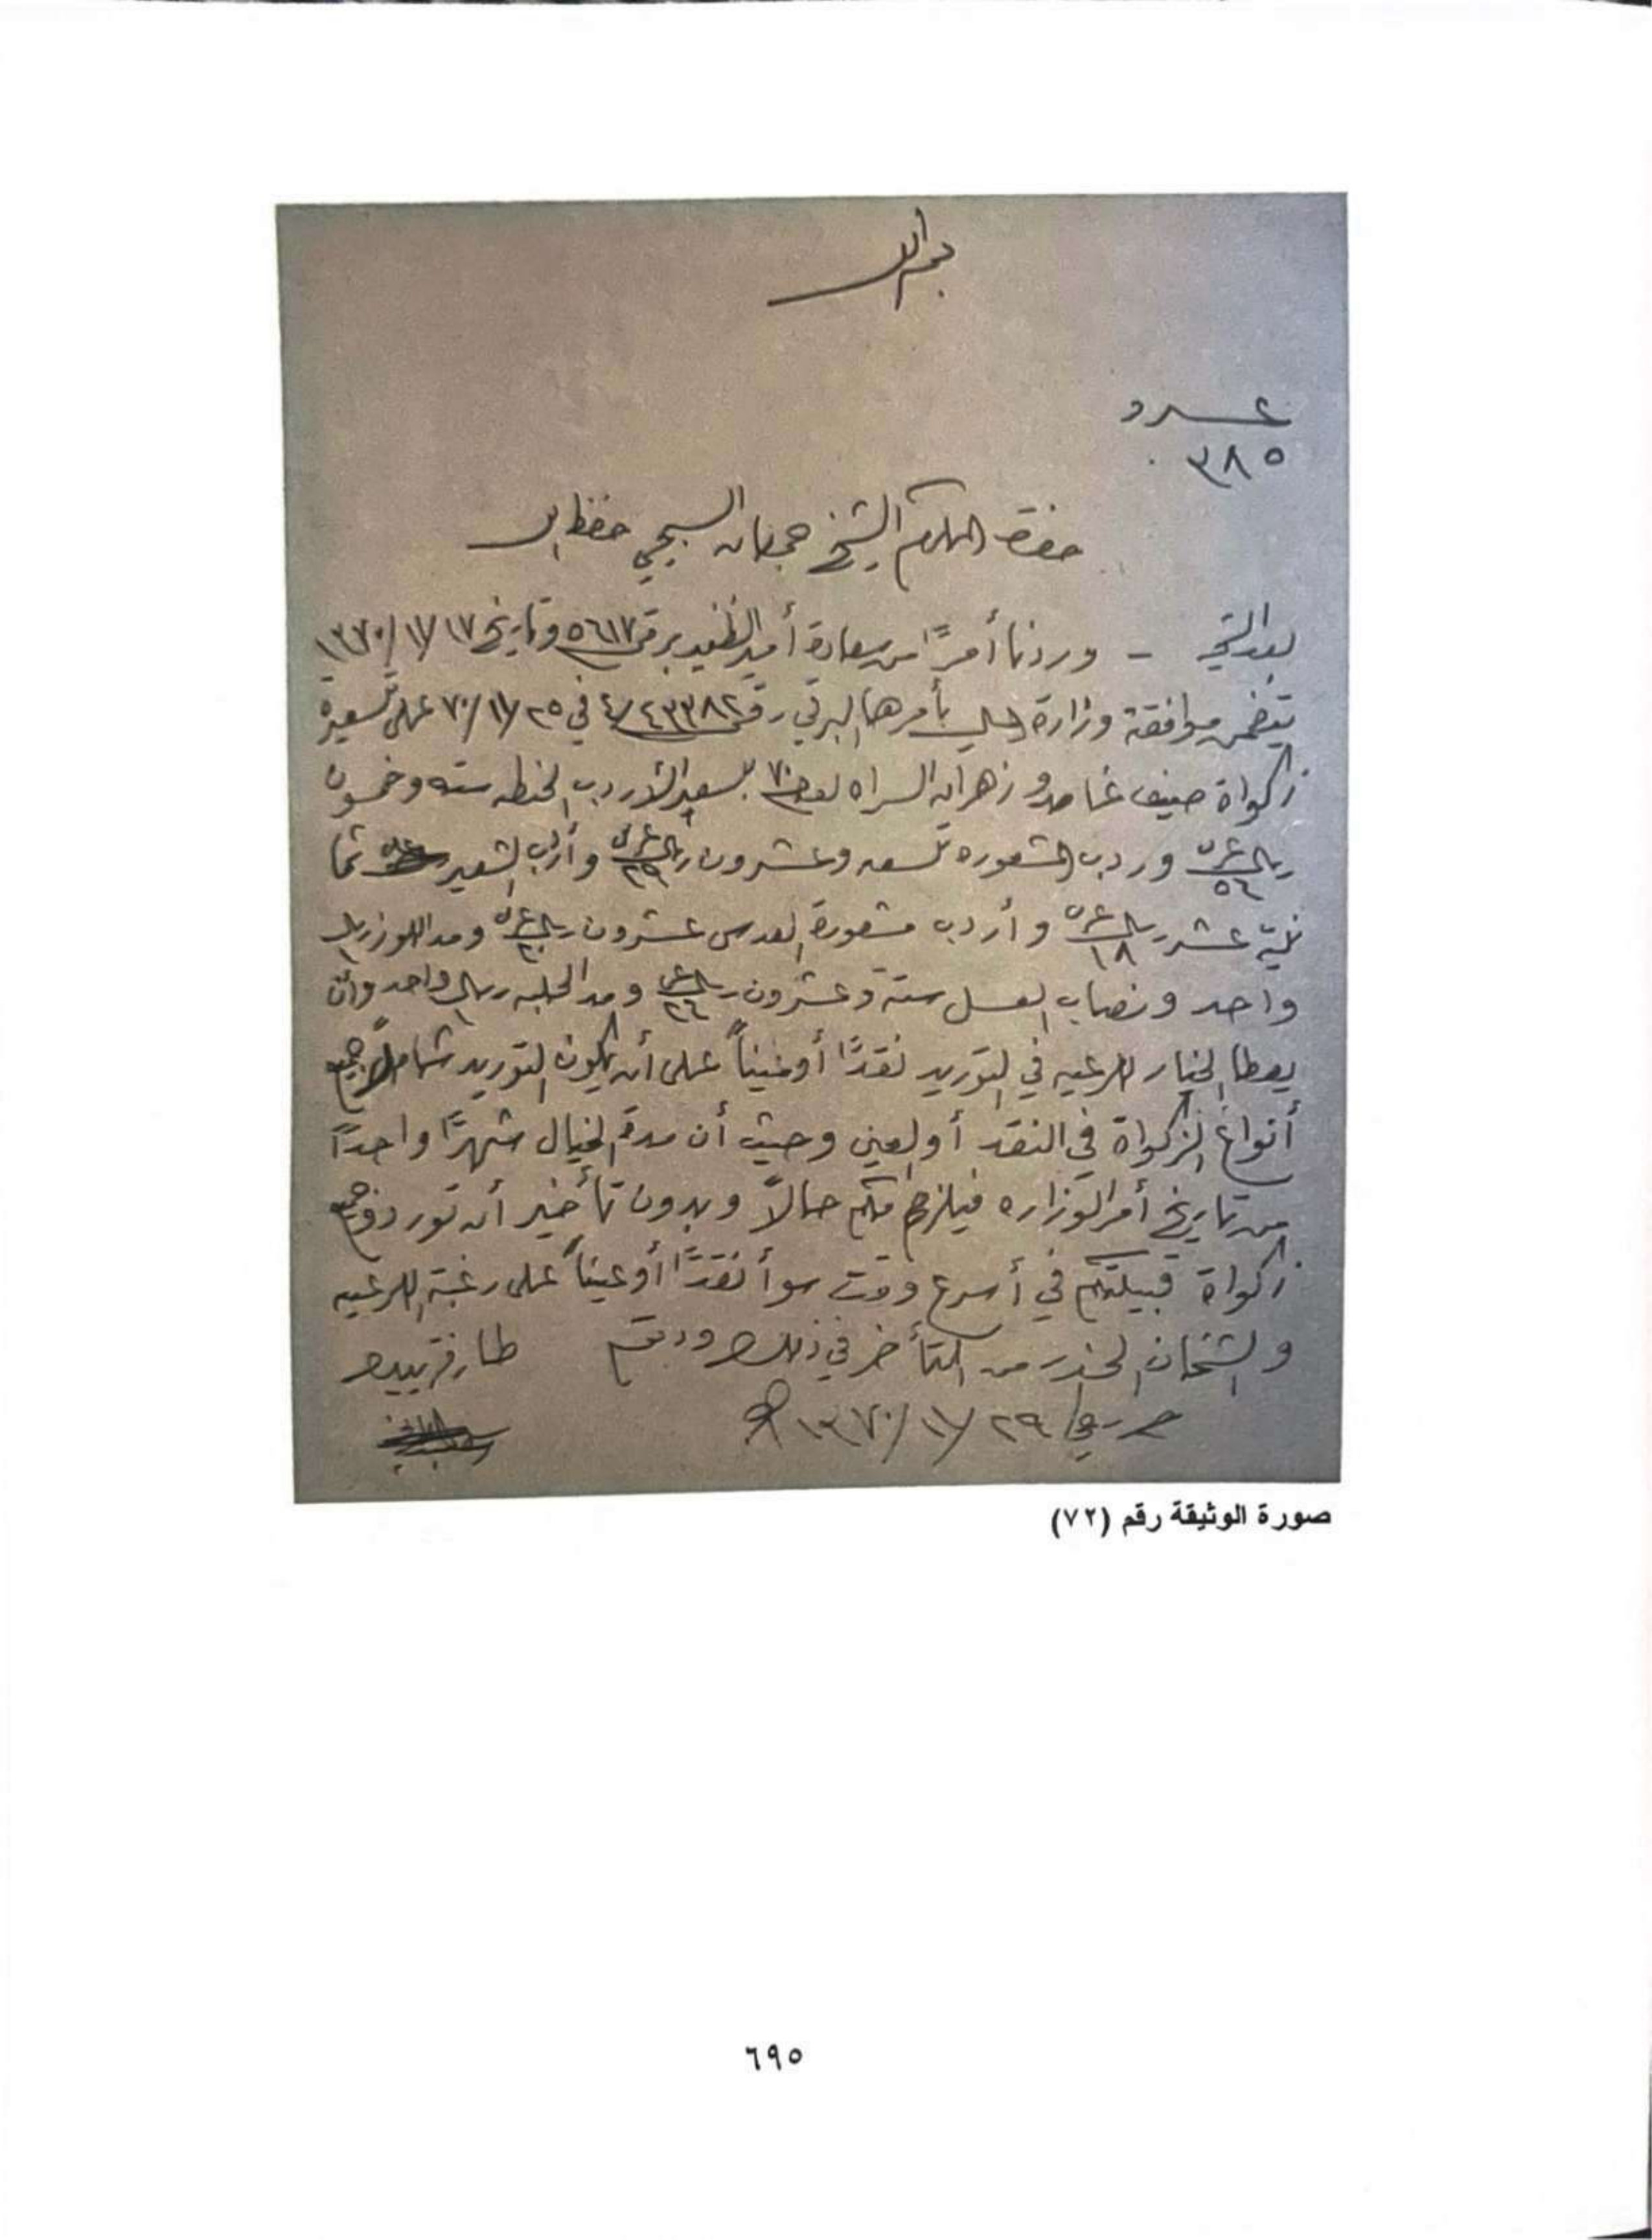 بسم الله
عدد
٣٨٥
حضرة المكرم الشيخ جمعان السبيحي حفظه الله
بعد التحية - وردنا أمرًا من سعادة أمير الظفير برقم ٥٦١٧ وتاريخ ١٧/ ١١/ ١٣٧٠
يتضمن موافقة وزارة المالية بأمرها البرقي رقم ٤/٤٣٣٨٢ في ٢٥/ ١١/ ٧٠ على تسعيرة
زكواة صيف غامد وزهران السراه لعام ٧٠ بسعر الأردب الحنطه سته وخمسون
ريال عربي ٥٦ وردب المشعوره تسعه وعشرون ريال عربي ٢٩ وأردب الشعير ثما
نية عشر ريال عربي ١٨ وأردب مشعورة العدس عشرون ريال عربي ٢٠ ومد اللوز ريال
واحد ونصاب العسل ستة وعشرون ريال عربي ٢٦ ومد الحلبه ريال واحد وأن
يعطا الخيار للرعيه في التوريد نقدًا أو عيناً على أن يكون التوريد شاملاً جميع
أنواع الزكواة في النقد أو العين وحيث أن مدة الخيار شهرًا واحدًا
من تاريخ أمر الوزاره فيلزم منكم حالاً وبدون تأخير أن توردو جميع
زكواة قبيلتكم في أسرع وقت سوأ نقدًا أو عيناً على رغبة الرعيه
والحذر من التأخر في ذلك ودمتم
٢٩/ ١١/ ١٣٧٠
صورة الوثيقة رقم (٧٢)
٦٩٥